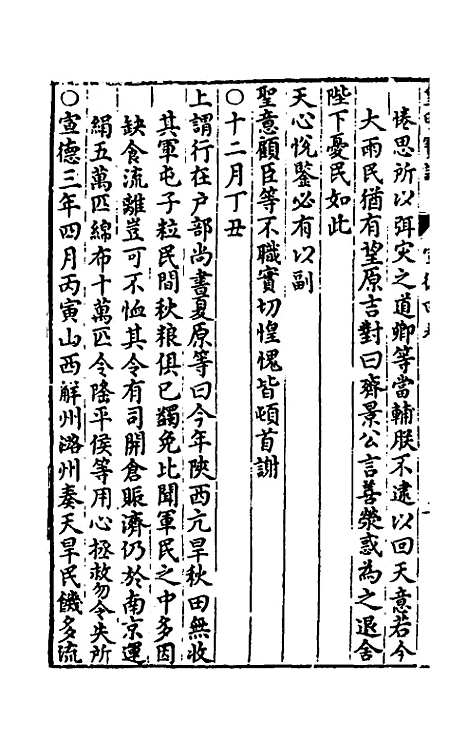 惓思所以弭灾之道卿等當輔朕不逮以回天意若今
大雨民猶有望原吉對曰齊景公言善熒惑為之退舍
陛下憂民如此
天心悅鑒必有以副
聖意顧臣等不職實切惶愧皆頓首謝
○十二月丁丑
上謂行在户部尚書夏原等曰今年陝西亢旱秋田無收
其軍屯子粒民間秋粮俱已蠲免比聞軍民之中多因
缺食流離豈可不恤其令有司開倉賑濟仍於南京運
絹五萬匹綿布十萬匹令隆平侯等用心拯救勿令失所
○宣德三年四月丙寅山西解州潞州奏天旱民饑多流